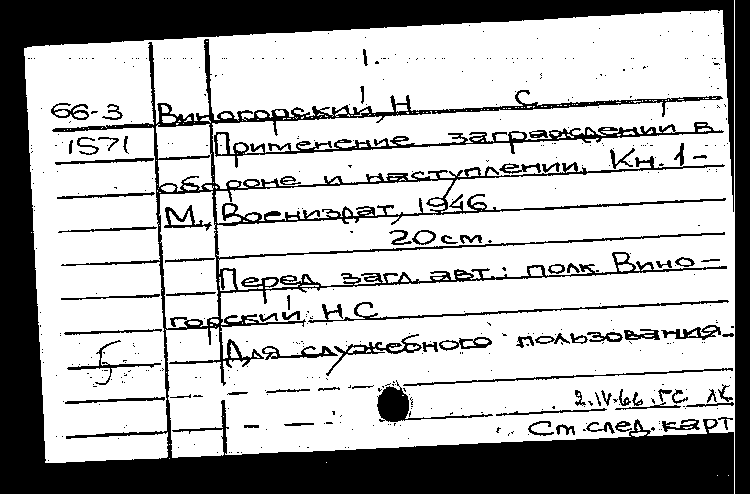 1.
66-3 Виногорский, Н С.
1571 Применение заграждений в
обороне и наступлении. Кн. 1-
М., Воениздат, 1946.
20 см.
Перед загл. авт.: полк. Вино-
горский, Н.С.
5 Для служебного пользования.
2.IV.66. ГС ЛК
См. след. карт